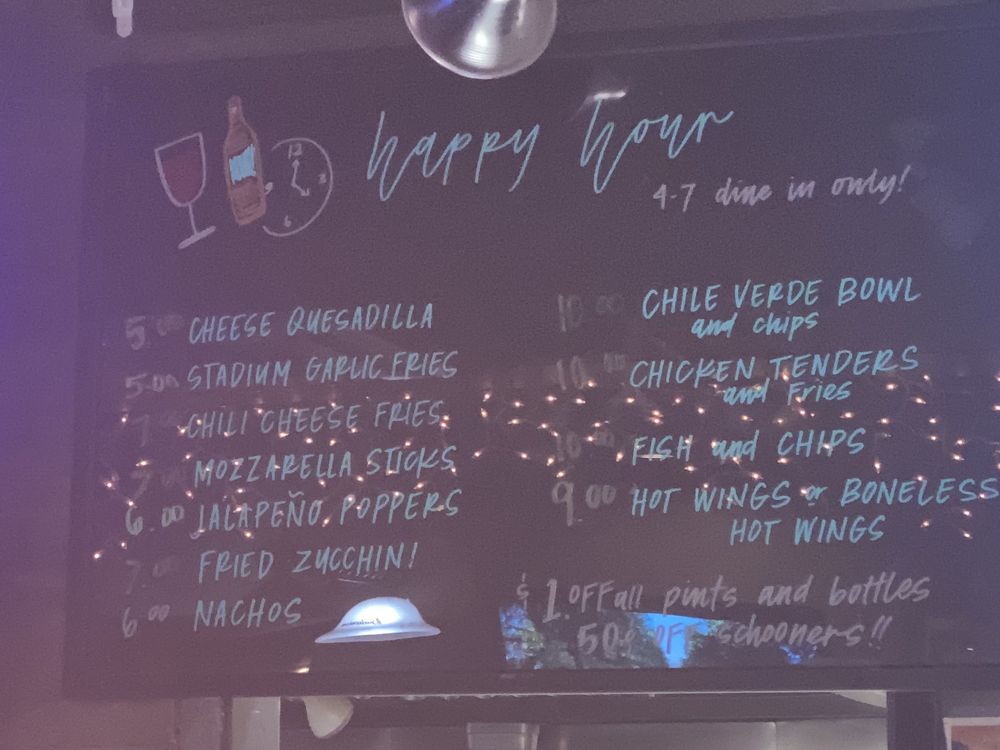 happy hour
4-7 dine in only!
5.00 CHEESE QUESADILLA
5.00 STADIUM GARLIC FRIES
7 CHILI CHEESE FRIES
7 MOZZARELLA STICKS
6.00 JALAPEÑO POPPERS
7.00 FRIED ZUCCHINI
6.00 NACHOS
10.00 CHILE VERDE BOWL
and chips
10.00 CHICKEN TENDERS
and Fries
10.00 FISH and CHIPS
9.00 HOT WINGS or BONELESS
HOT WINGS
$1.OFF all pints and bottles
50¢ OFF schooners!!